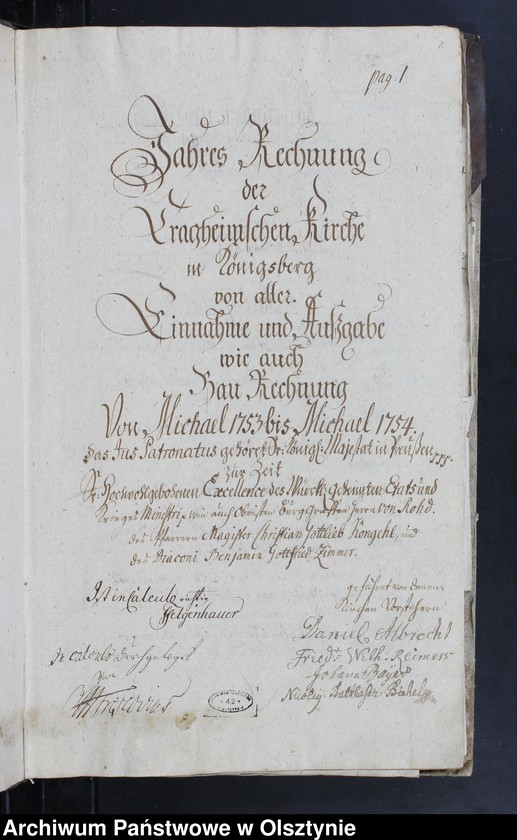 pag. 1
Jahres Rechnung
der
Tragheimschen Kirche
in Königsberg
von aller
Einnahme und Außgabe
wie auch
Bau Rechnung
Von Michael 1753 bis Michael 1754.
das Jus Patronatus gehöret Sr. Königl. Majestat in Preußen
zur Zeit
Sr. Hochwohlgebohrnen Excellence des Würckl. geheimten Etats und
Krieges Ministri, wie auch Obristen Burggraffen Herrn von Rohd.
des Pfarrern Magister Christian Gottlieb Kongehl, und
des Diaconi Benjamin Gottfried Zimmer.
Ist in Calculo richtig
Felgenhauer
In calculo durchgelegt
geführet von denen
Kirchen Vorstehern
Daniel Albrecht
Fried: Wilh: Reimers
Johann Bayer
Balthasar
42
Archiwum Państwowe w Olsztynie